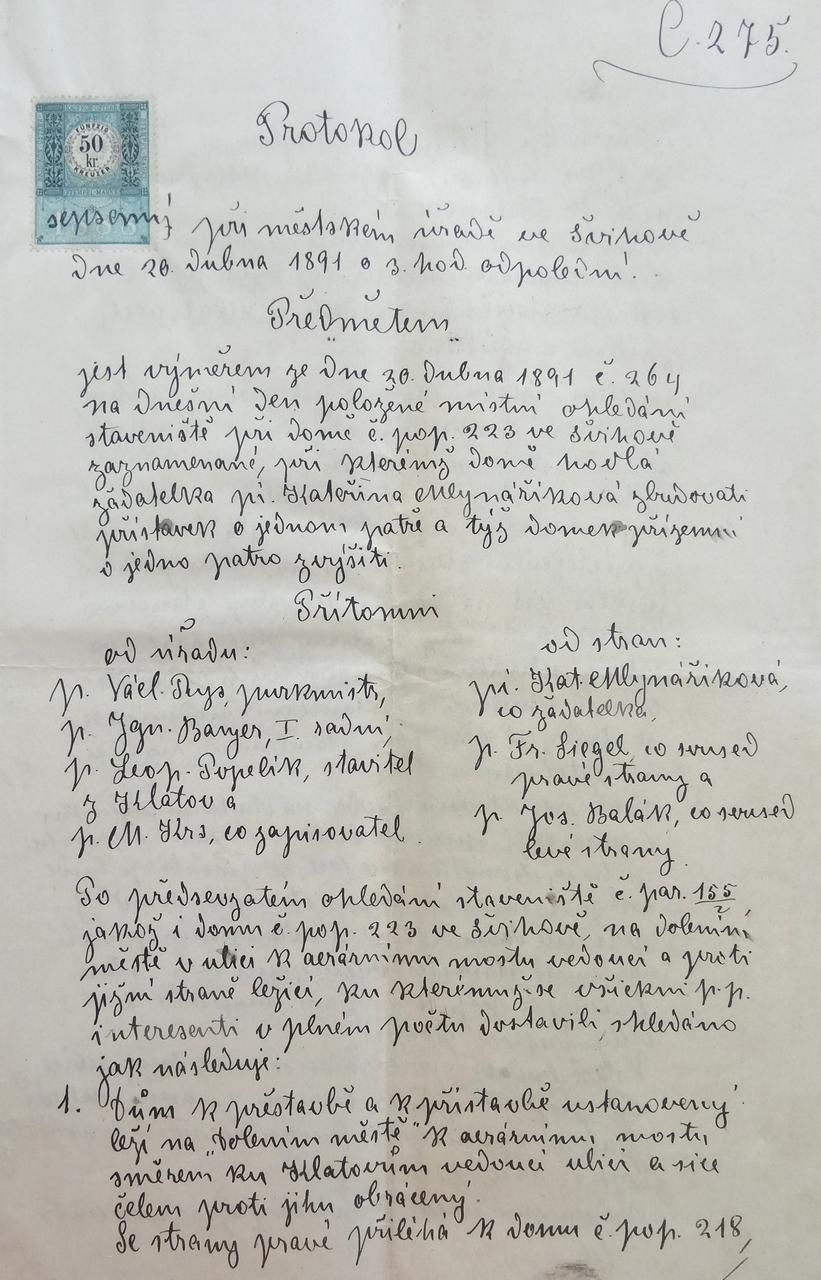 Č. 275.
FÜNFZIG
50
kr.
KREUZER
STEMPEL-MARKE
Protokol
sepsaný při městském úřadě ve Švihově
dne 20. dubna 1891 o 3. hod. odpolední.
Předmětem
jest výměrem ze dne 20. dubna 1891 č. 264
na dnešní den položené místní ohledání
staveniště při domě č. pop. 223 ve Švihově
zaznamenané, při kterémž domě hodlá
žadatelka pí. Kateřina Mlynáříková zbudovati
přístavek o jednom patře a týž domek přízemní
o jedno patro zvýšiti.
Přítomni
od úřadu:
p. Václ. Rys, purkmistr,
p. Ign. Bayer, I. radní,
p. Leop. Popelík, stavitel
z Klatov a
p. M. Krs, co zapisovatel.
od stran:
pí. Kat. Mlynáříková,
co žadatelka,
p. Fr. Siegel, co soused
pravé strany a
p. Jos. Balák, co soused
levé strany.
Po předsevzatém ohledání staveniště č. par. 155/2
jakož i domu č. pop. 223 ve Švihově, na dolením
městě v ulici k aerárnímu mostu vedoucí a proti
jižní straně ležící, ku kterémuž se všickni p. p.
interesenti v plném počtu dostavili, shledáno
jak následuje:
1. Dům k přestavbě a k přístavbě ustanovený
leží na „Dolením městě" k aerárnímu mostu,
směrem ku Klatovům vedoucí ulici a sice
čelem proti jihu obrácený.
Se strany pravé přiléhá k domu č. pop. 218,